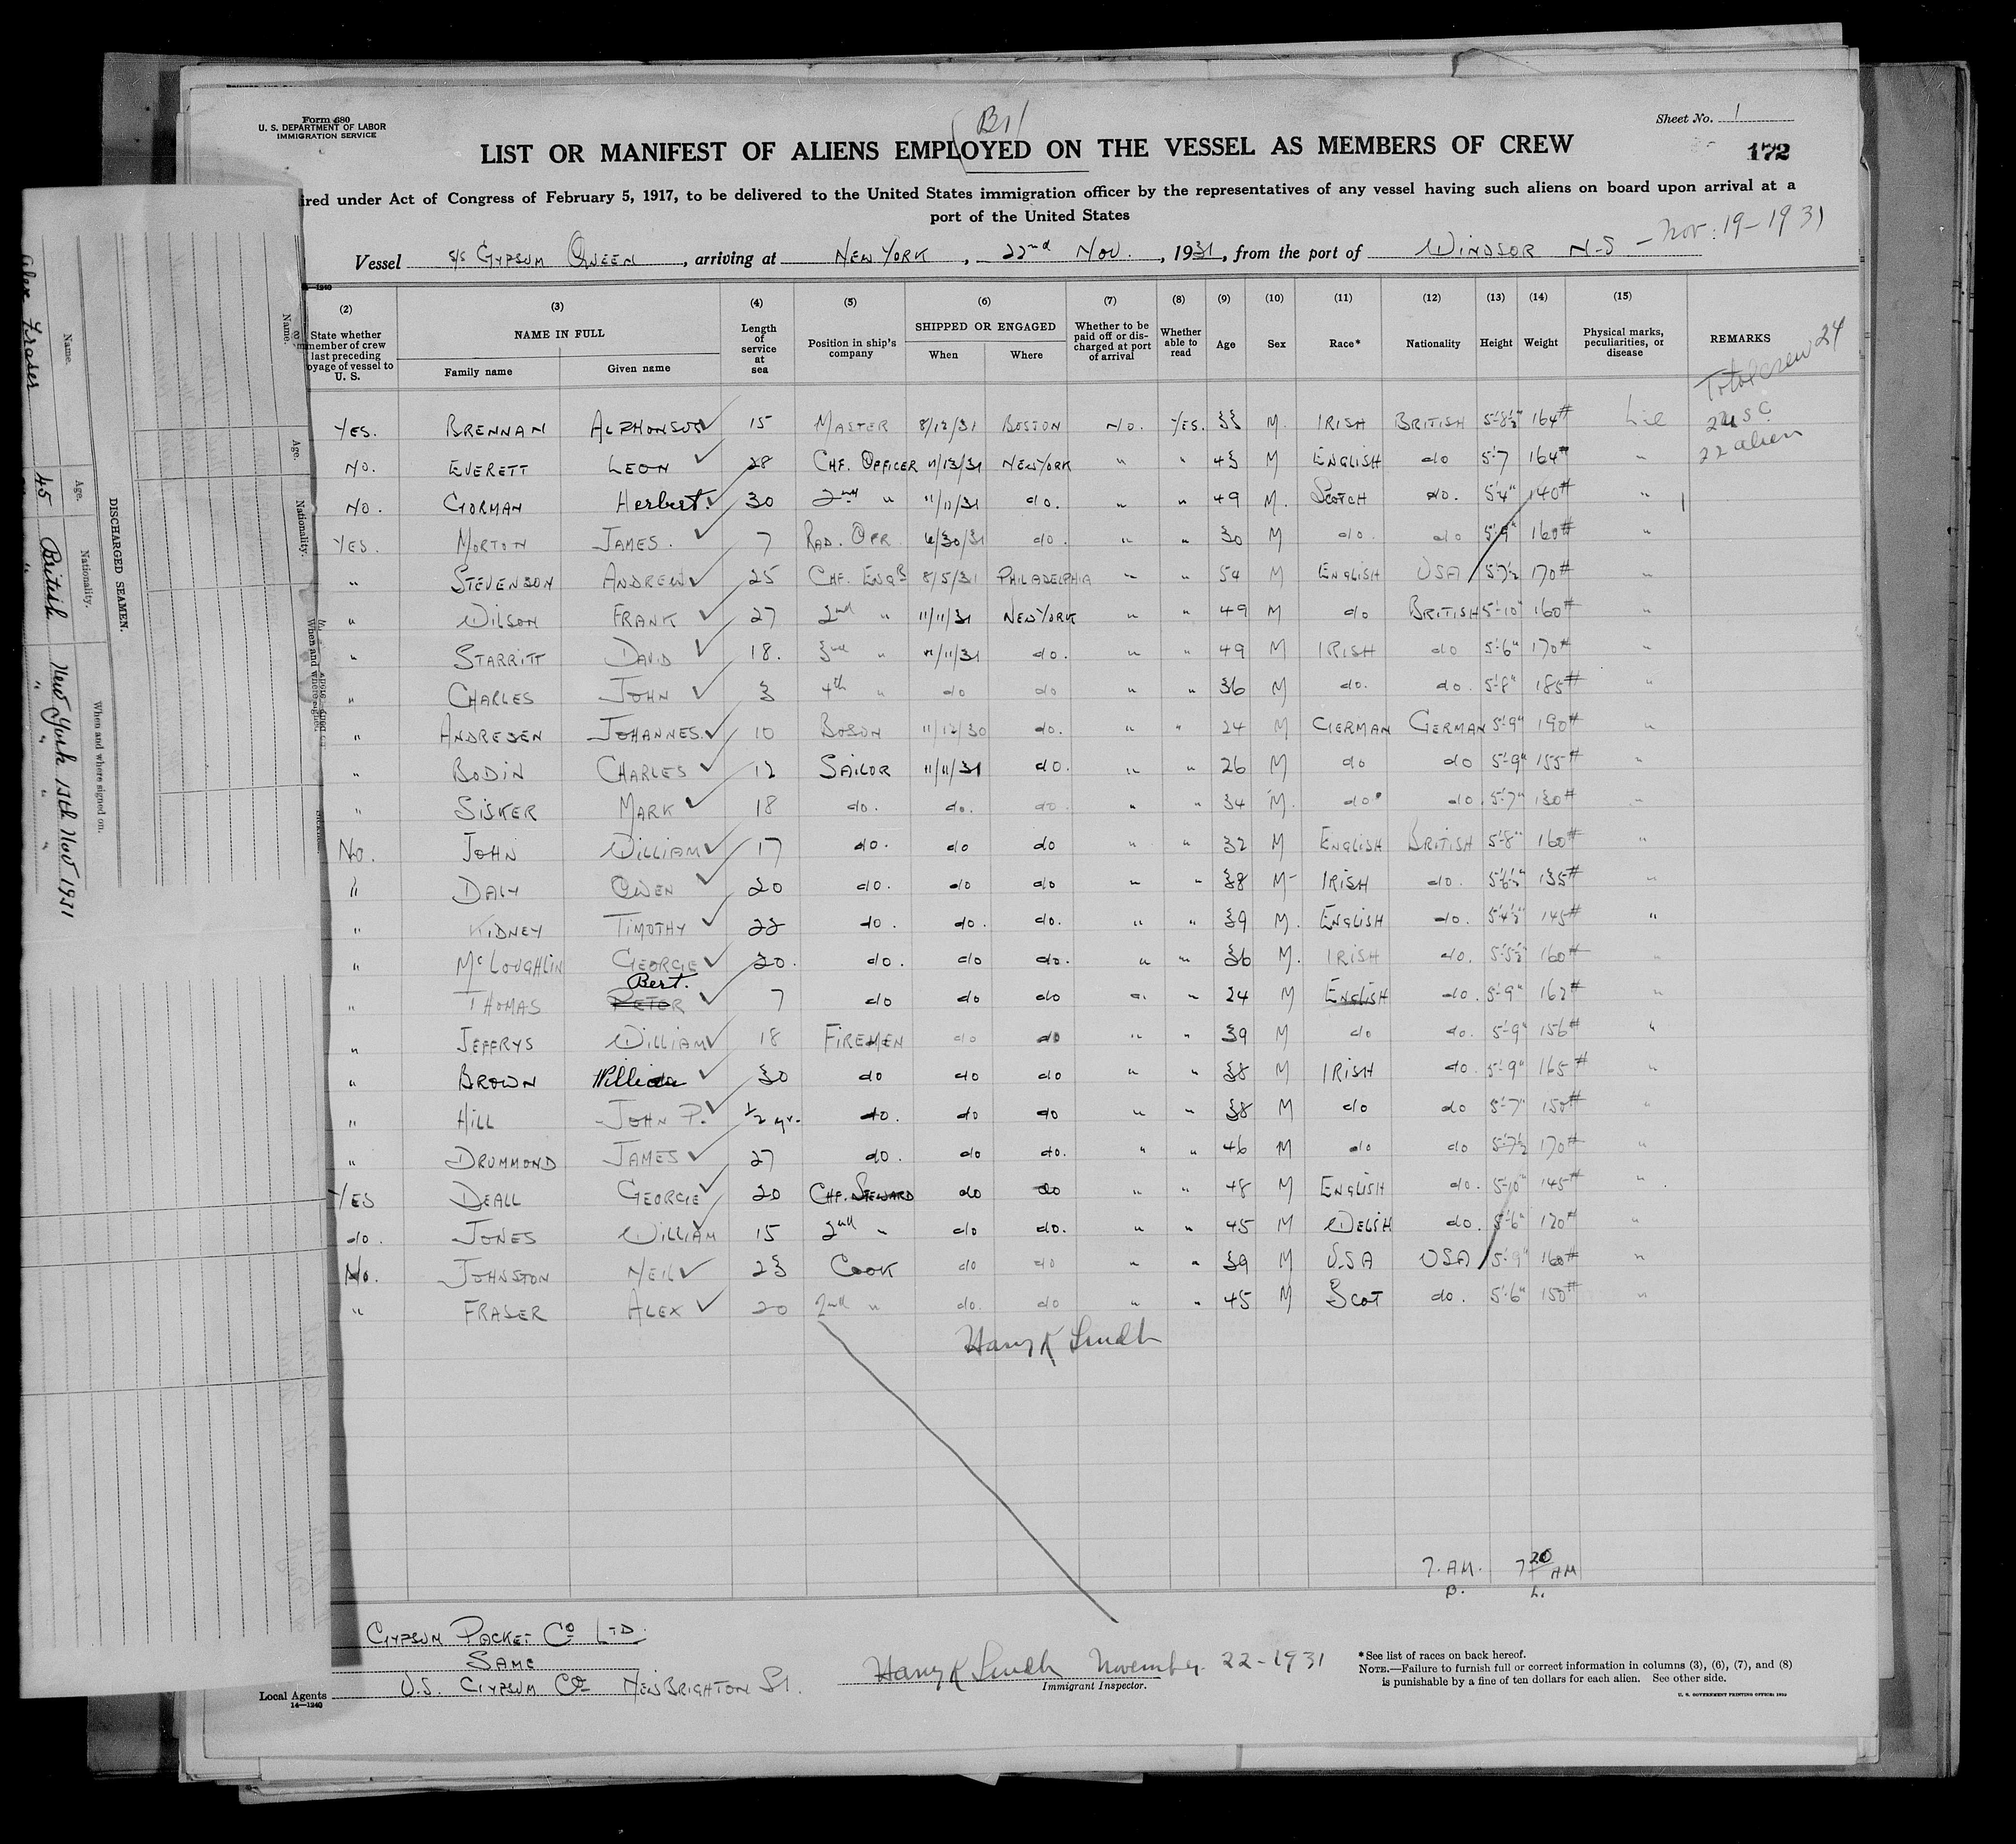 Form 680
U. S. DEPARTMENT OF LABOR
IMMIGRATION SERVICE
Br
Sheet No. 1
LIST OR MANIFEST OF ALIENS EMPLOYED ON THE VESSEL AS MEMBERS OF CREW
172
ired under Act of Congress of February 5, 1917, to be delivered to the United States immigration officer by the representatives of any vessel having such aliens on board upon arrival at a
port of the United States
Vessel s/s GYPSUM QUEEN, arriving at NEW YORK, 22nd NOV., 1931, from the port of WINDSOR N-S - Nov: 19-1931
(2) (3) (4) (5) (6) (7) (8) (9) (10) (11) (12) (13) (14) (15)
State whether member of crew last preceding oyage of vessel to U. S. NAME IN FULL Family name Given name Length of service at sea Position in ship's company SHIPPED OR ENGAGED When Where Whether to be paid off or discharged at port of arrival Whether able to read Age Sex Race* Nationality Height Weight Physical marks, peculiarities, or disease REMARKS
Total crew 24
2 U S C
22 alien
YES. BRENNAN ALPHONSUS 15 MASTER 8/12/31 BOSTON NO. YES. 33 M. IRISH BRITISH 5'-8½" 164#
NO. EVERETT LEON 28 CHF. OFFICER 11/13/31 NEW YORK " " 43 M ENGLISH do 5'-7 164# "
NO. GORMAN Herbert. 30 2nd " 11/11/31 do. " " 49 M. SCOTCH do. 5'4" 140# "
YES. MORTON JAMES. 7 RAD. OPR 6/30/31 do. " " 30 M do. do 5'-9" 160# "
" STEVENSON ANDREW 25 CHF. ENGR 8/5/31 PHILADELPHIA " " 54 M ENGLISH USA 5'7½ 170# "
" WILSON FRANK 27 2nd " 11/11/31 NEW YORK " " 49 M do BRITISH 5'-10" 160# "
" STARRITT DAVID 18. 3rd " 11/11/31 do. " " 49 M IRISH do 5'-6" 170# "
" CHARLES JOHN 3 4th " do do " " 36 M do. do. 5'-8" 185# "
" ANDRESEN JOHANNES. 10 BOSUN 11/12/30 do. " " 24 M GERMAN GERMAN 5'-9" 190# "
" BODIN CHARLES 12 SAILOR 11/11/31 do. " " 26 M do do 5'-9" 155# "
" SISKER MARK 18 do. do. do. " " 34 M. do do 5'-7" 130# "
No. JOHN WILLIAM 17 do. do do " " 32 M ENGLISH BRITISH 5'-8" 160# "
" DALY OWEN 20 do. do do " " 38 M- IRISH do. 5'6½" 135# "
" KIDNEY TIMOTHY 22 do. do. do. " " 39 M. ENGLISH do. 5'4½" 145# "
" McLOUGHLIN GEORGE 20. do. do do. " " 36 M. IRISH do. 5'-5½ 160# "
Bert.
" THOMAS PETER 7 do do do " " 24 M ENGLISH do. 5'-9" 162# "
" JEFFRYS WILLIAM 18 FIREMEN do do " " 39 M do do. 5'-9" 156# "
" BROWN 30 do do do " " 38 M IRISH do. 5'-9" 165# "
" HILL JOHN P. ½ yr. do. do do " " 38 M do do 5'-7" 150# "
" DRUMMOND JAMES 27 do. do do. " " 46 M do do 5'-7½ 170# "
YES DEALL GEORGE 20 CHF. STEWARD do do " " 48 M ENGLISH do. 5'-10" 145# "
do. JONES WILLIAM 15 2nd " do do. " " 45 M WELSH do. 5'-6" 120# "
No. JOHNSTON NEIL 23 COOK do do " " 39 M USA USA 5'-9" 160# "
" FRASER ALEX 20 2nd " do. do " " 45 M SCOT do. 5'-6" 150# "
7. AM. 7 20 AM
B. L.
GYPSUM PACKET CO LTD.
SAME
Local Agents U.S. GYPSUM CO NEW BRIGHTON S.I.
14—1240
November 22-1931
Immigrant Inspector.
*See list of races on back hereof.
NOTE.—Failure to furnish full or correct information in columns (3), (6), (7), and (8)
is punishable by a fine of ten dollars for each alien. See other side.
DISCHARGED SEAMEN.
Name. Age. Nationality. When and where signed on.
Alex Fraser 45 British New York 12th Nov 1931
Name. Age. Nationality. When and where signed